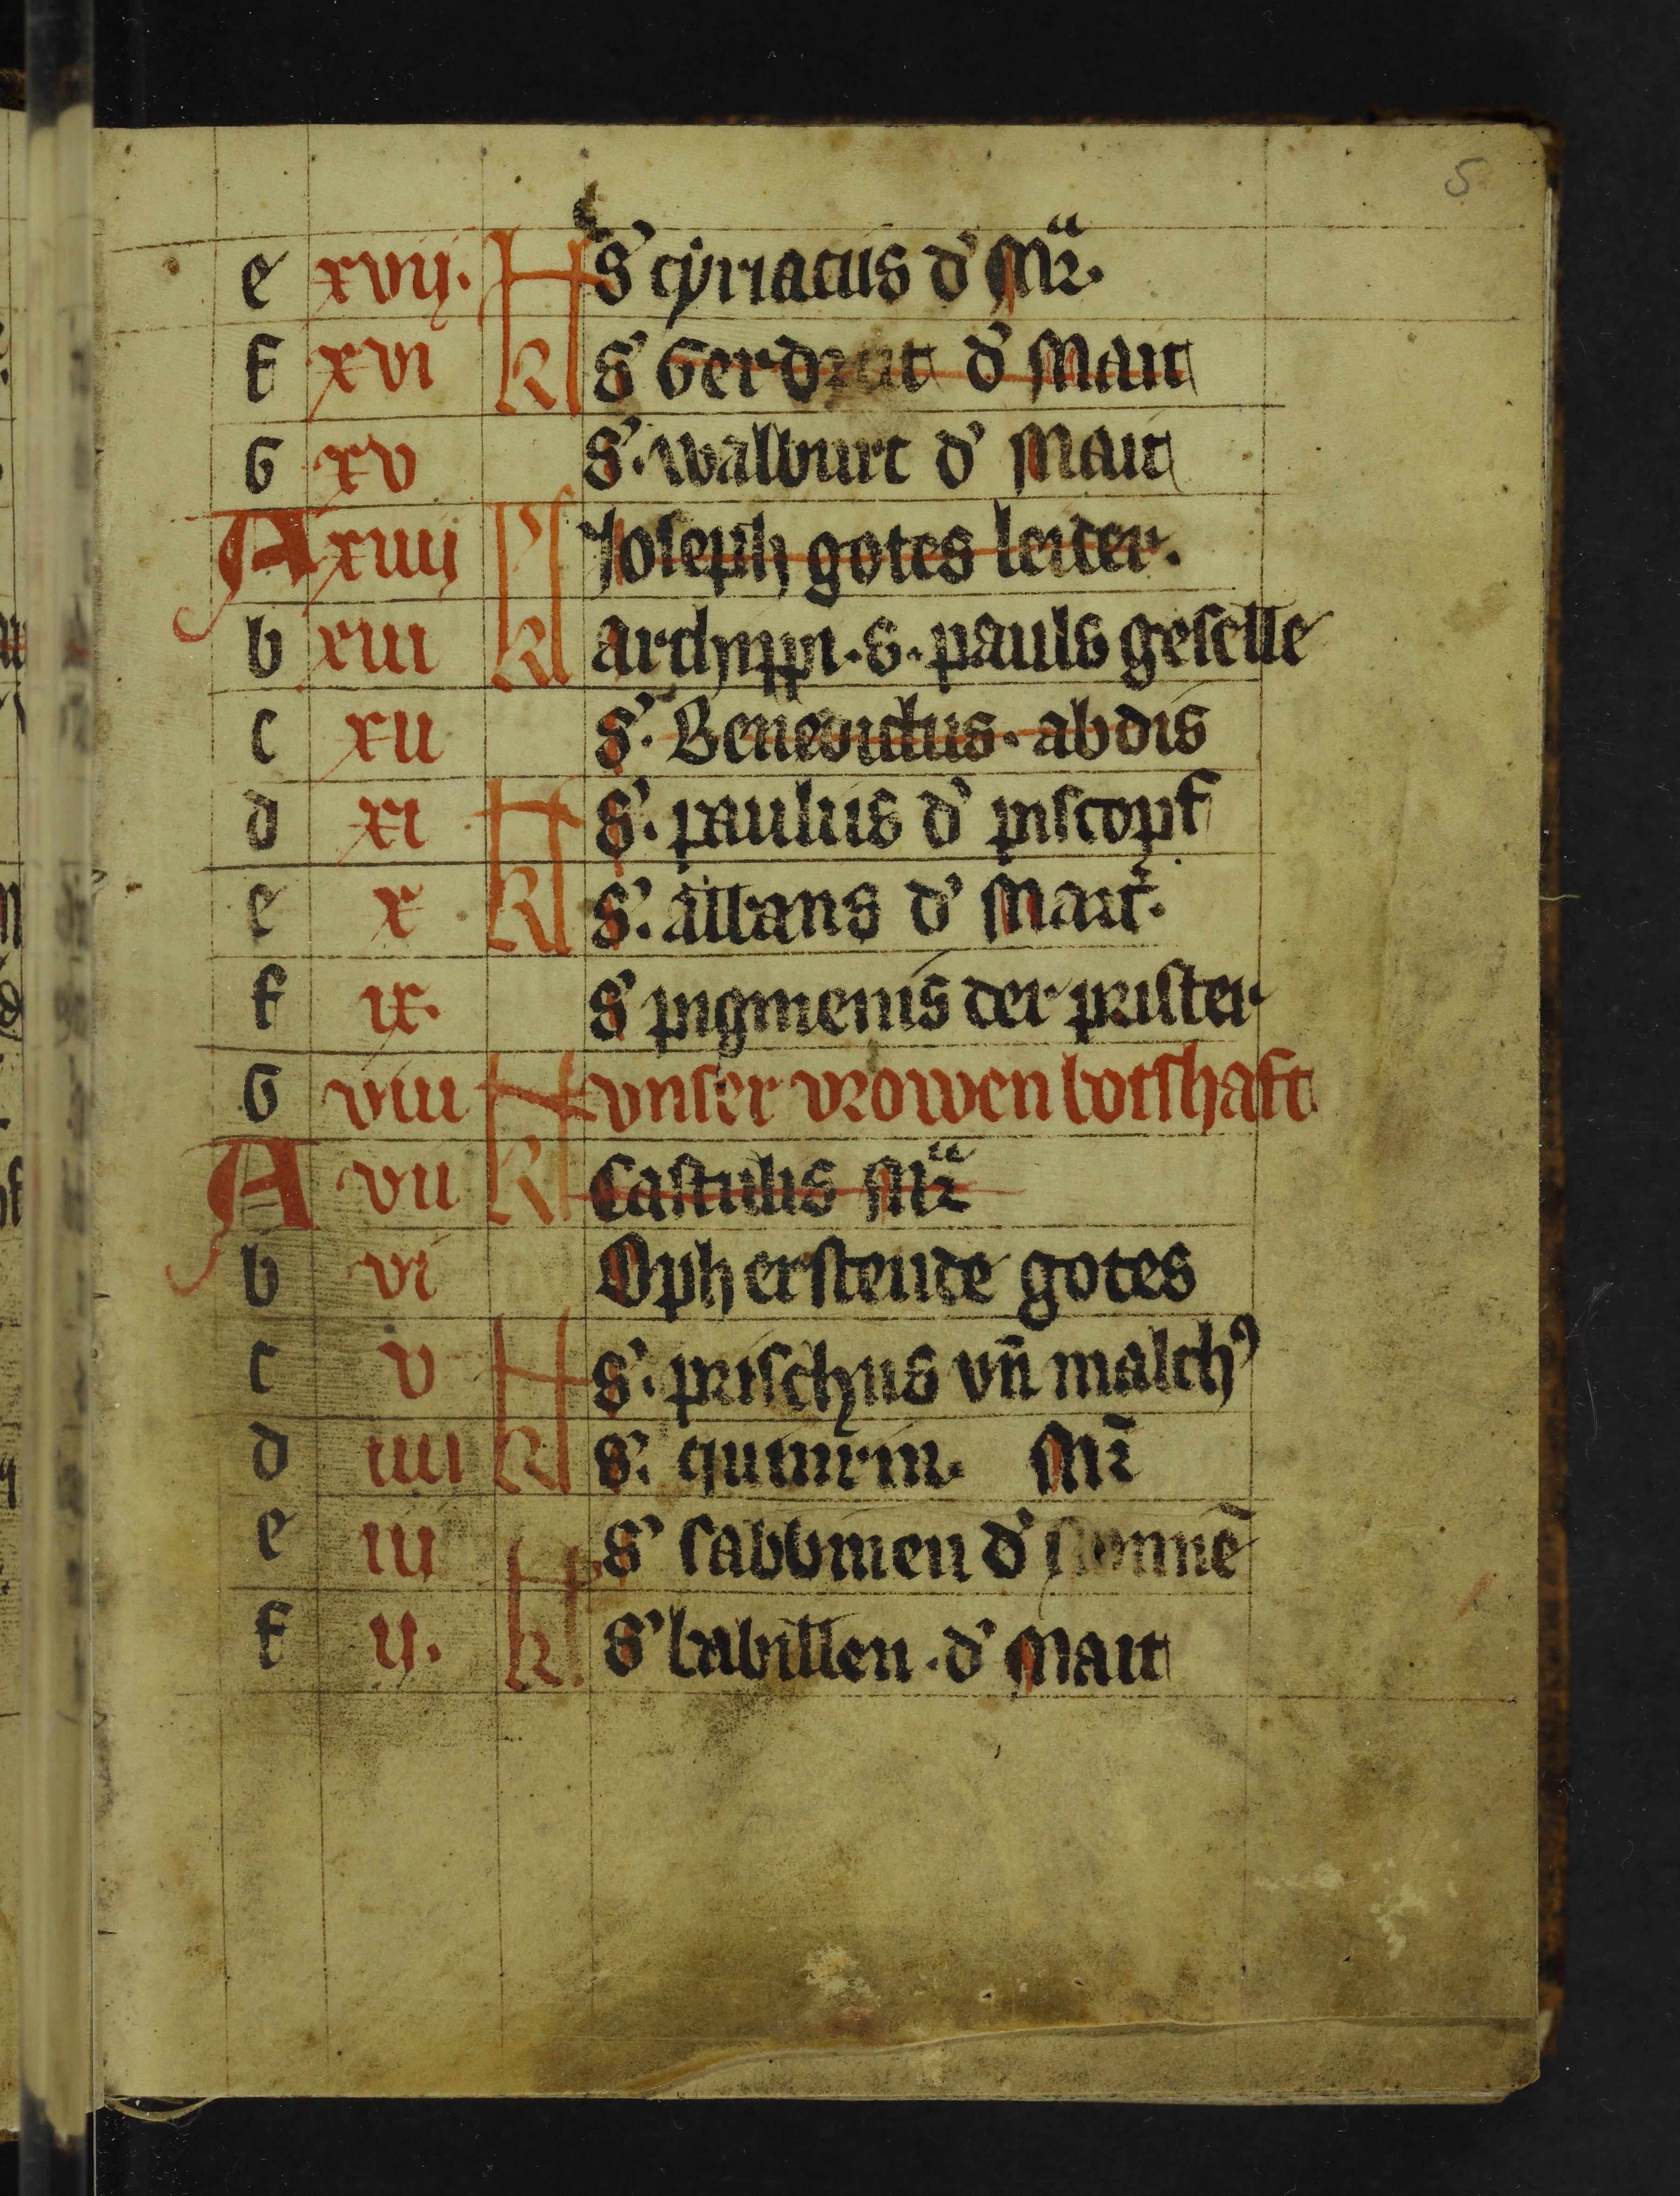 5
e xvij. kl s' cyriacus d' Mr̃.
f xvi s' Gerdrut d' Mait
G xv S'. walburc d' Mait
A xiiij kl Joseph gotes leider.
b xiii archippi · s · pauls geselle
c xii S'. Benedictus · abdis
d xi kl S'. paulus d' piscopf
e x S'. albans d' Mait.
f ix. S' pigmenis der prister
G viii kl vnser vrowen botshaft
A vii Castulis Mr̃
b vi Oph erstende gotes
c v kl S'. prischus vñ malch⁹
d iiii S'. quinrin. Mr̃
e iii kl S' sabbinen d'
f ij. S' babillen · d' Mait